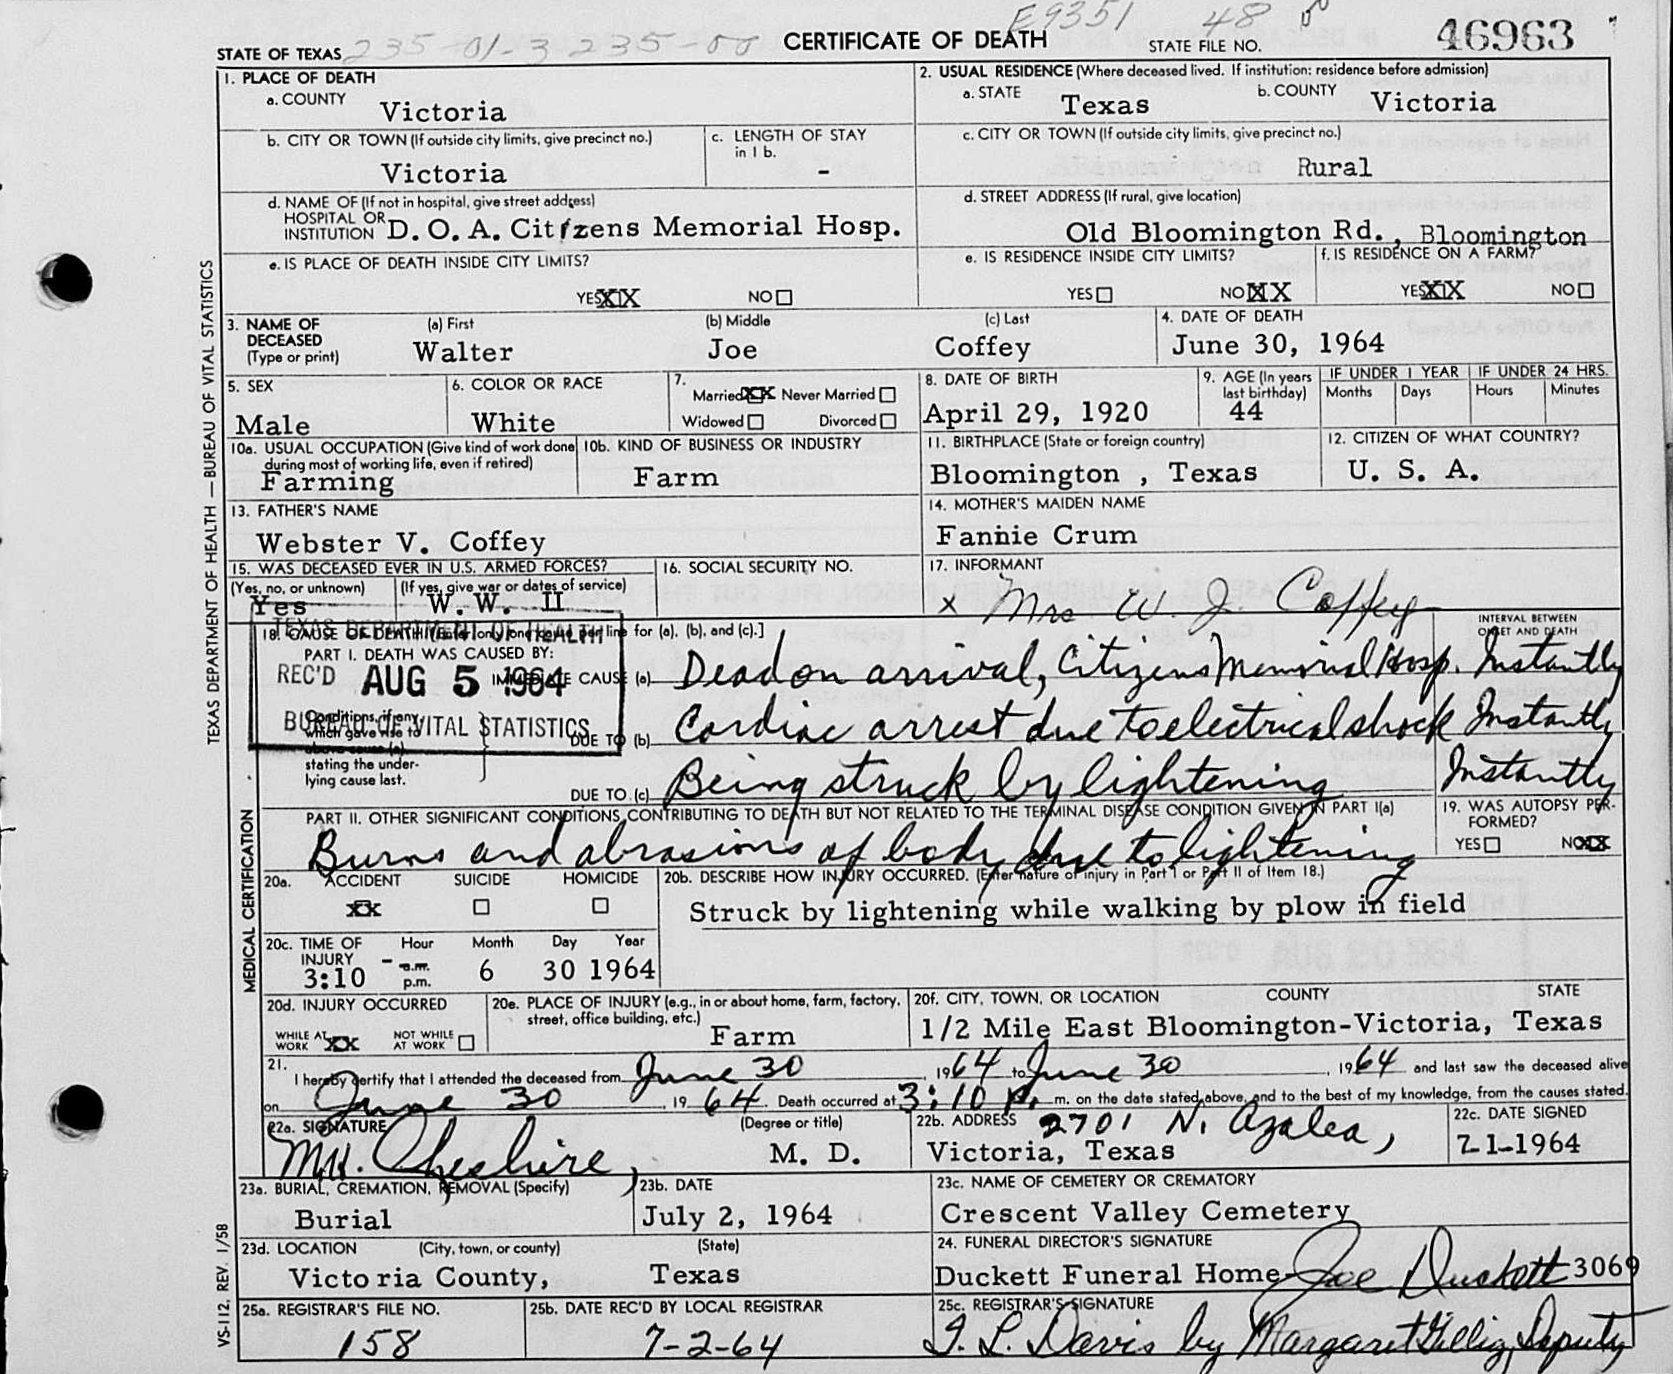 E9351 48
STATE OF TEXAS 235-01-3 235-00 CERTIFICATE OF DEATH STATE FILE NO. 46963
1. PLACE OF DEATH
a. COUNTY Victoria
2. USUAL RESIDENCE (Where deceased lived. If institution: residence before admission)
a. STATE Texas b. COUNTY Victoria
b. CITY OR TOWN (If outside city limits, give precinct no.)
Victoria
c. LENGTH OF STAY
in 1 b.
-
c. CITY OR TOWN (If outside city limits, give precinct no.)
Rural
d. NAME OF (If not in hospital, give street address)
HOSPITAL OR
INSTITUTION D. O. A. Citizens Memorial Hosp.
d. STREET ADDRESS (If rural, give location)
Old Bloomington Rd., Bloomington
e. IS PLACE OF DEATH INSIDE CITY LIMITS?
YES XX NO
e. IS RESIDENCE INSIDE CITY LIMITS?
YES NO XX
f. IS RESIDENCE ON A FARM?
YES XX NO
3. NAME OF
DECEASED
(Type or print)
(a) First (b) Middle (c) Last
Walter Joe Coffey
4. DATE OF DEATH
June 30, 1964
5. SEX
Male
6. COLOR OR RACE
White
7.
Married XX Never Married
Widowed Divorced
8. DATE OF BIRTH
April 29, 1920
9. AGE (In years
last birthday)
44
IF UNDER 1 YEAR IF UNDER 24 HRS.
Months Days Hours Minutes
10a. USUAL OCCUPATION (Give kind of work done
during most of working life, even if retired)
Farming
10b. KIND OF BUSINESS OR INDUSTRY
Farm
11. BIRTHPLACE (State or foreign country)
Bloomington , Texas
12. CITIZEN OF WHAT COUNTRY?
U. S. A.
13. FATHER'S NAME
Webster V. Coffey
14. MOTHER'S MAIDEN NAME
Fannie Crum
15. WAS DECEASED EVER IN U.S. ARMED FORCES?
(Yes, no, or unknown) (If yes, give war or dates of service)
Yes W. W. II
16. SOCIAL SECURITY NO.
17. INFORMANT
x Mrs W. J. Coffey
TEXAS DEPARTMENT OF HEALTH
REC'D AUG 5 1964
BUREAU OF VITAL STATISTICS
18. CAUSE OF DEATH [Enter only one cause per line for (a), (b), and (c).]
INTERVAL BETWEEN
ONSET AND DEATH
PART I. DEATH WAS CAUSED BY:
IMMEDIATE CAUSE (a) Dead on arrival, Citizens Memorial Hosp. Instantly
Conditions, if any,
which gave rise to
above cause (a)
stating the under-
lying cause last.
DUE TO (b) Cardiac arrest due to electrical shock Instantly
DUE TO (c) Being struck by lightening Instantly
PART II. OTHER SIGNIFICANT CONDITIONS CONTRIBUTING TO DEATH BUT NOT RELATED TO THE TERMINAL DISEASE CONDITION GIVEN IN PART I(a)
Burns and abrasions of body due to lightening
19. WAS AUTOPSY PER-
FORMED?
YES NO XX
20a. ACCIDENT SUICIDE HOMICIDE
XX
20b. DESCRIBE HOW INJURY OCCURRED. (Enter nature of injury in Part I or Part II of Item 18.)
Struck by lightening while walking by plow in field
20c. TIME OF
INJURY
Hour Month Day Year
3:10 a.m.
p.m. 6 30 1964
20d. INJURY OCCURRED
WHILE AT
WORK XX NOT WHILE
AT WORK
20e. PLACE OF INJURY (e.g., in or about home, farm, factory,
street, office building, etc.)
Farm
20f. CITY, TOWN, OR LOCATION COUNTY STATE
1/2 Mile East Bloomington-Victoria, Texas
21.
I hereby certify that I attended the deceased from June 30, 1964 to June 30, 1964 and last saw the deceased alive
on June 30, 1964. Death occurred at 3:10 P. m. on the date stated above, and to the best of my knowledge, from the causes stated.
22a. SIGNATURE (Degree or title)
Cheshire, M. D.
22b. ADDRESS 2701 N. Azalea,
Victoria, Texas
22c. DATE SIGNED
7-1-1964
23a. BURIAL, CREMATION, REMOVAL (Specify)
Burial
23b. DATE
July 2, 1964
23c. NAME OF CEMETERY OR CREMATORY
Crescent Valley Cemetery
23d. LOCATION (City, town, or county) (State)
Victoria County, Texas
24. FUNERAL DIRECTOR'S SIGNATURE
Duckett Funeral Home- Joe Duckett 3069
25a. REGISTRAR'S FILE NO.
158
25b. DATE REC'D BY LOCAL REGISTRAR
7-2-64
25c. REGISTRAR'S SIGNATURE
L. Davis by Margaret Gillig, Deputy
TEXAS DEPARTMENT OF HEALTH — BUREAU OF VITAL STATISTICS
MEDICAL CERTIFICATION
VS-112, REV. 1/58